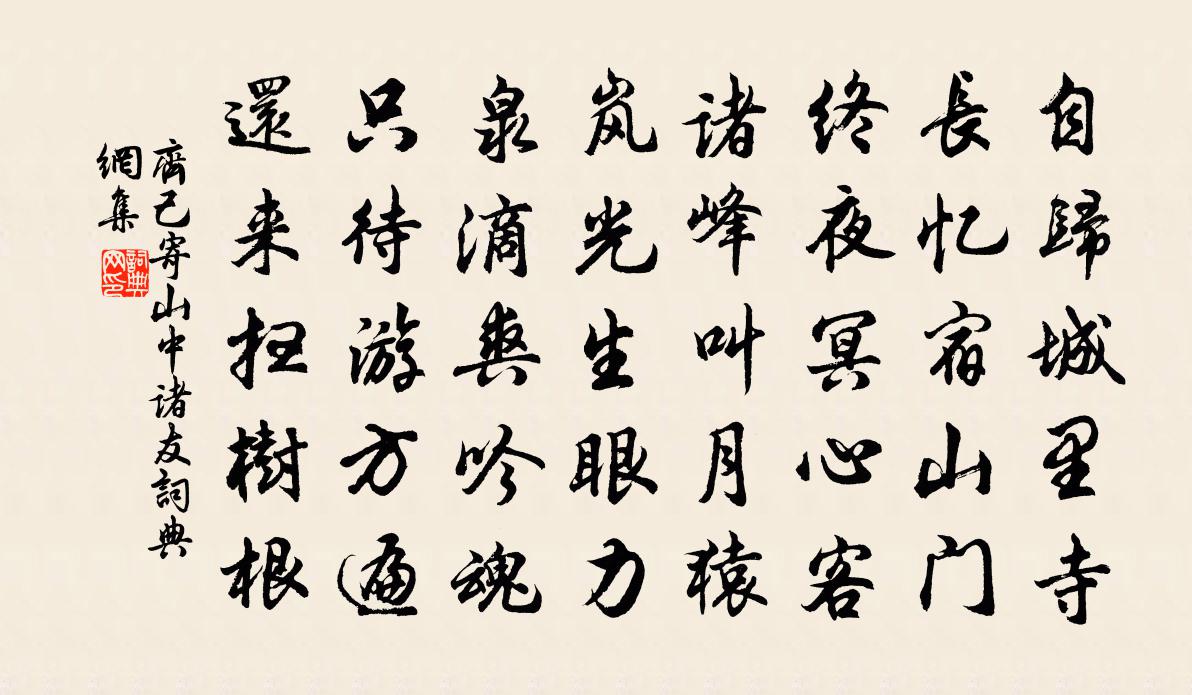 自歸城里寺
長忆宿山门
终夜冥心客
诸峰叫月猿
岚光生眼力
泉滴爽吟魂
只待游方遍
還来扫樹根
齊己寄山中诸友詞典
網集
詞典
网印